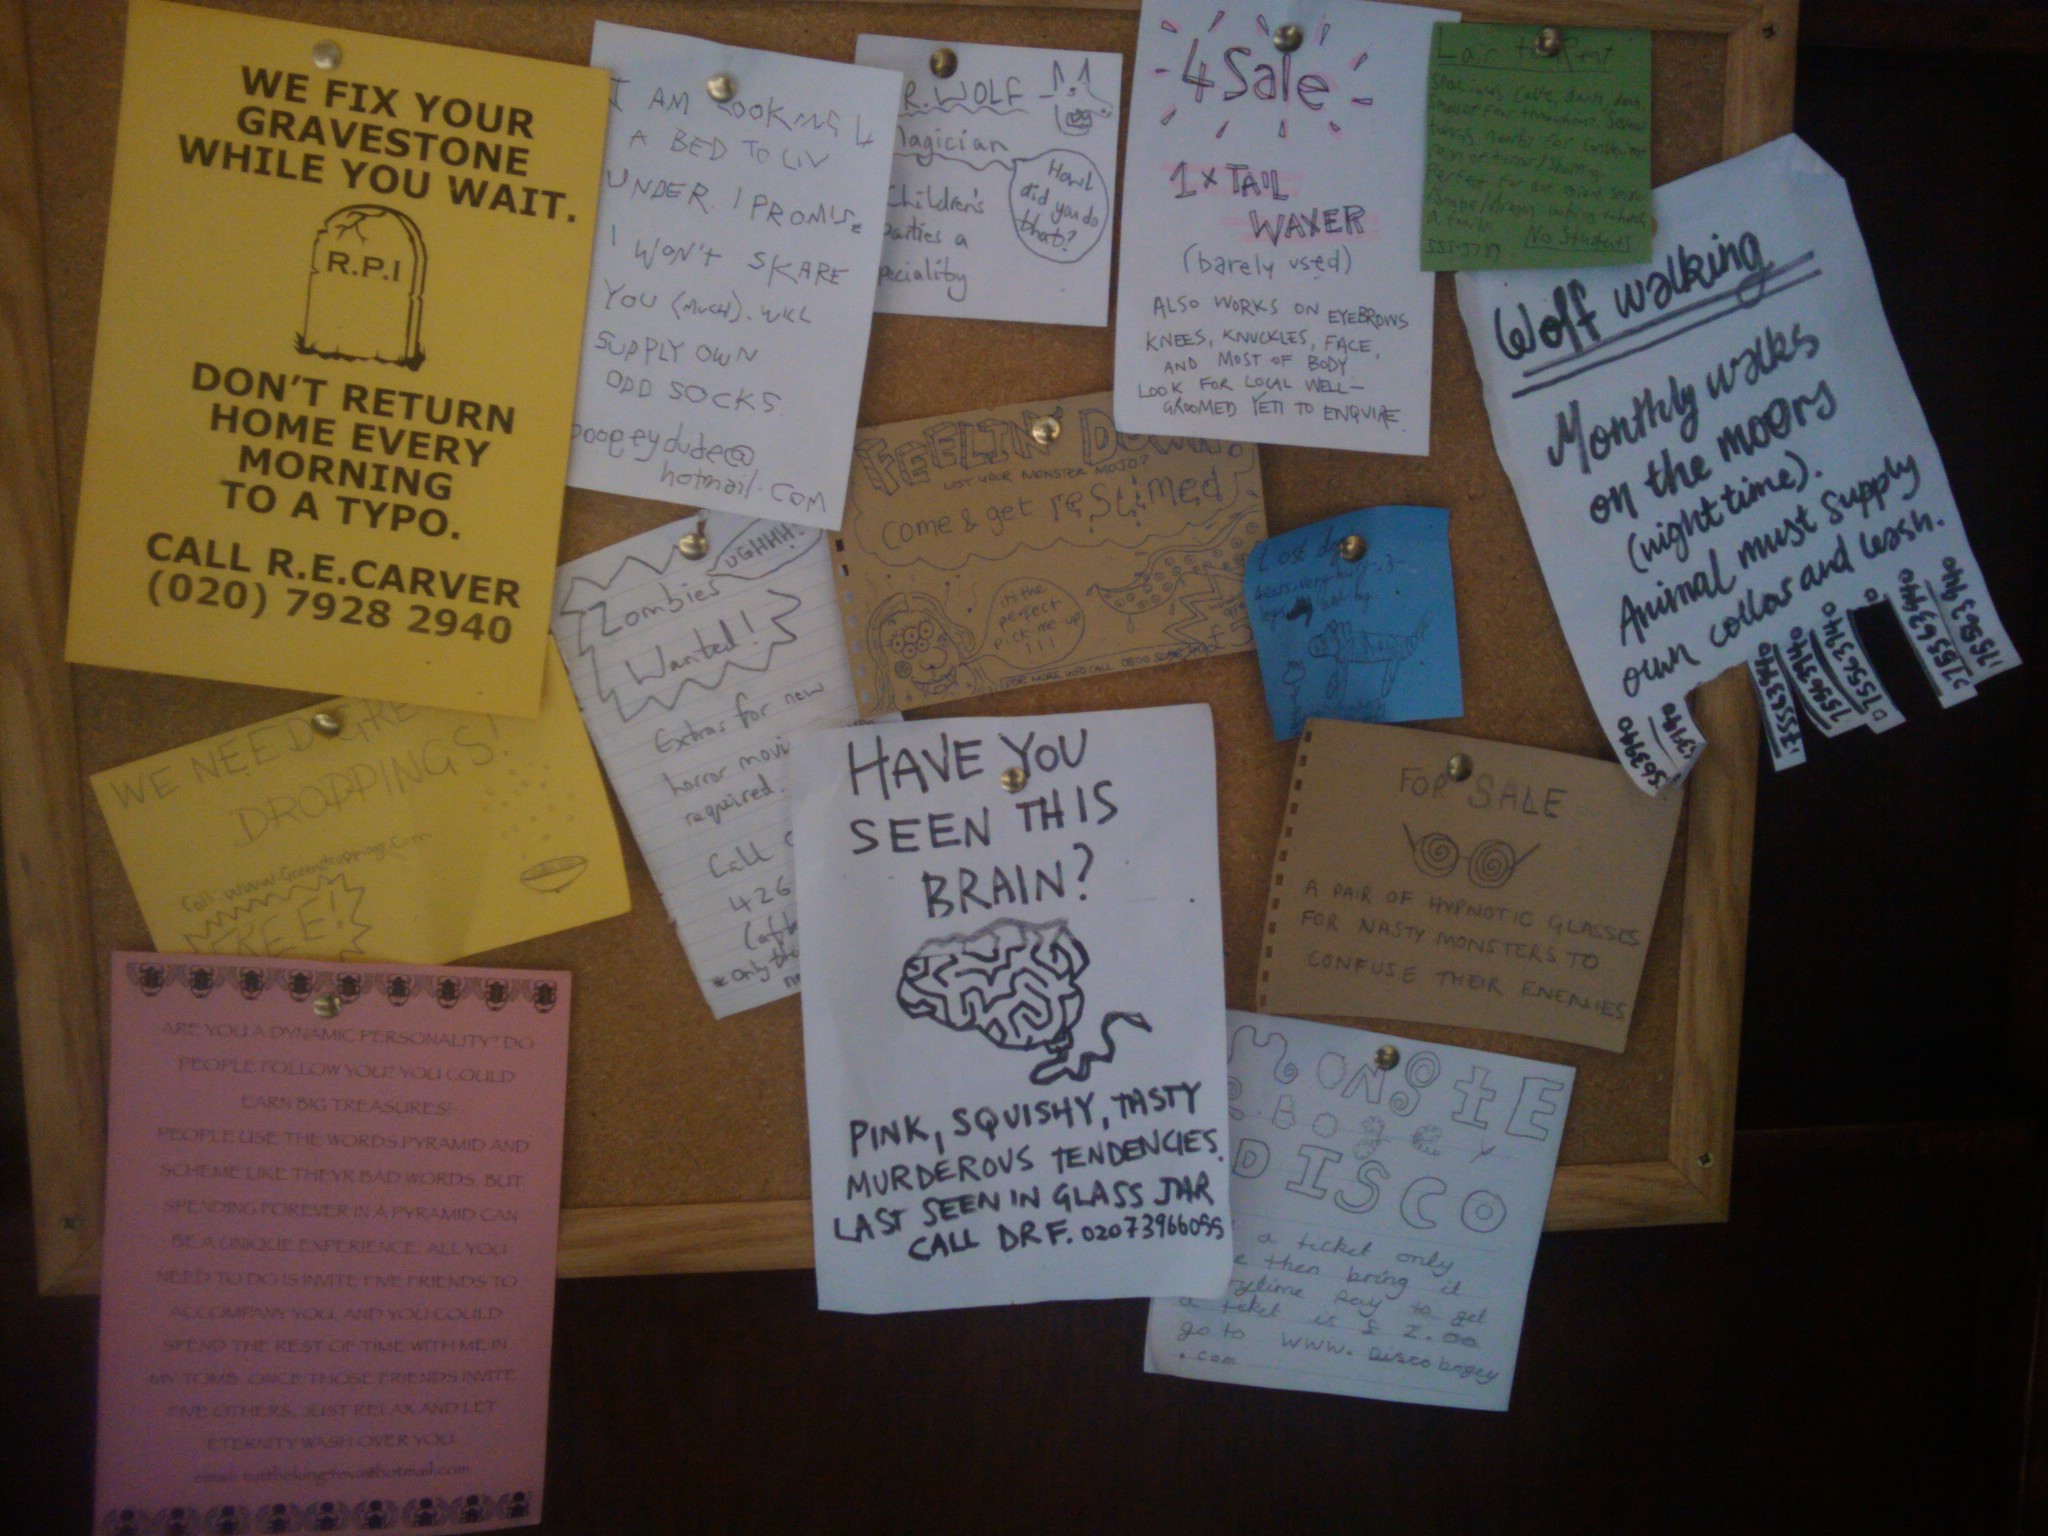 WE FIX YOUR
GRAVESTONE
WHILE YOU WAIT.
R.P.I
DON'T RETURN
HOME EVERY
MORNING
TO A TYPO.
CALL R.E.CARVER
(020) 7928 2940
I AM LOOKING 4
A BED TO LIV
UNDER. I PROMISE
I WON'T SKARE
YOU (MUCH). WILL
SUPPLY OWN
ODD SOCKS.
poopeydude@
hotmail.com
R.WOLF
Magician
Children's
parties a
speciality
Howl
did you do
that?
4 Sale
1 x TAIL
WAXER
(barely used)
ALSO WORKS ON EYEBROWS
KNEES, KNUCKLES, FACE,
AND MOST OF BODY.
LOOK FOR LOCAL WELL-
GROOMED YETI TO ENQUIRE.
Lair to Rent
Spacious cave, dark, dank,
No Students
Wolf walking
Monthly walks
on the moors
(night time).
Animal must supply
own collar and leash.
FEELIN' DOWN?
LOST YOUR MONSTER MOJO?
come & get reslimed
it's the
perfect
pick me up
!!!
FOR MORE INFO CALL 0800
Lost dog
UGHHH!
Zombies
Wanted!
Extras for new
horror movi
required.
Call
426
WE NEED GRE
DROPPINGS!
FREE!
HAVE YOU
SEEN THIS
BRAIN?
PINK, SQUISHY, TASTY
MURDEROUS TENDENCIES.
LAST SEEN IN GLASS JAR
CALL DR F. 02073966055
FOR SALE
A PAIR OF HYPNOTIC GLASSES
FOR NASTY MONSTERS TO
CONFUSE THEIR ENEMIES
MONSTE
R BOOGEY
DISCO
a ticket only
then bring it
rytime pay to get
a ticket is £ 2.00
go to www.Discobogey
.com
ARE YOU A DYNAMIC PERSONALITY? DO
PEOPLE FOLLOW YOU? YOU COULD
EARN BIG TREASURES!
PEOPLE USE THE WORDS PYRAMID AND
SCHEME LIKE THEYR BAD WORDS. BUT
SPENDING FOREVER IN A PYRAMID CAN
BE A UNIQUE EXPERIENCE. ALL YOU
NEED TO DO IS INVITE FIVE FRIENDS TO
ACCOMPANY YOU, AND YOU COULD
SPEND THE REST OF TIME WITH ME IN
MY TOMB. ONCE THOSE FRIENDS INVITE
FIVE OTHERS, JUST RELAX AND LET
ETERNITY WASH OVER YOU.